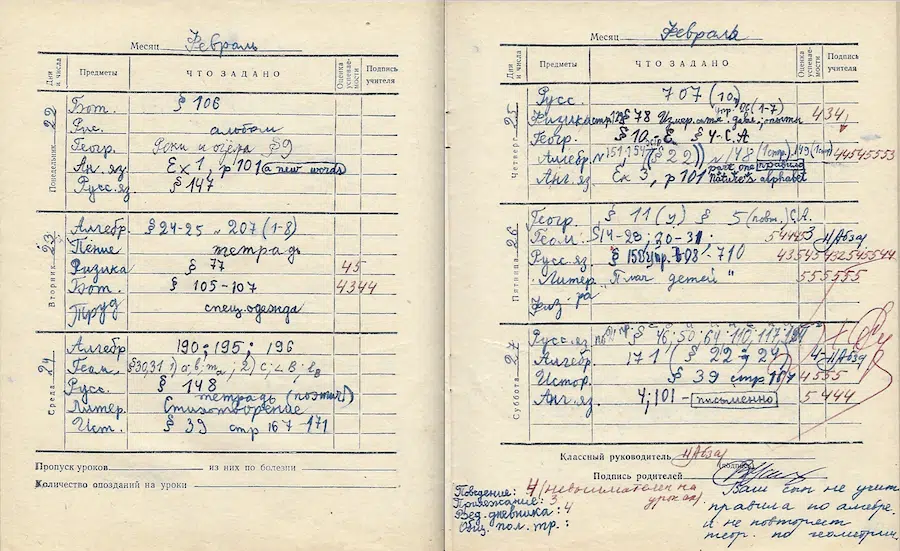 Месяц Февраль
Дни и числа Предметы ЧТО ЗАДАНО Оценка успеваемости Подпись учителя
Понедельник 22
Бот. § 106
Рис. альбом
Геогр. Реки и озёра §9
Ан. яз. Ex 1, p 101 a new words
Русс. яз § 147
Вторник 23
Алгебр. § 24-25 № 207 (1-8)
Пение тетрадь
Физика § 77 45
Бот. § 105-107 4344
Труд спец. одежда
Среда 24
Алгебр 190; 195; 196
Геом. §30,31 1) a; b; 2) c; ∠B;
Русс. § 148
тетрадь (поэтич)
Литер. Стихотворение
Ист. § 39 стр 167-171
Пропуск уроков из них по болезни
Количество опозданий на уроки
Месяц Февраль
Дни и числа Предметы ЧТО ЗАДАНО Оценка успеваемости Подпись учителя
Четверг 25
Русс. 707 (10)
Физика § 78 Измер. атм. давл., опыты 434
Геогр. § 10 § 4-С.А.
Алгебр. № 151, 154 (§ 22) № 148 149 44545553
Анг. яз Ex 3, p 101 part one правило nature's alphabet
Пятница 26
Геогр. § 11 (у) § 5 (повт.) С.А.
Геом. §14-28; 30-31. 54453
Русс. яз § 158 упр. 708-710
Литер. "Плач детей" 555555
Физ-ра
Суббота 27
Русс. яз 46; 50; 64; 110; 117;
Алгебр. 171 (§ 22 24) 4
Истор. § 39 стр 167 4555
Анг. яз. 4; 101 - письменно 5444
Классный руководитель
Подпись родителей
(подпись)
Поведение: 4 (невнимателен на уроках)
Прилежание: 3
Вед. дневника: 4
Общ. пол. тр.:
Ваш сын не учит
правила по алгебре.
и не повторяет
теор. по геометрии.